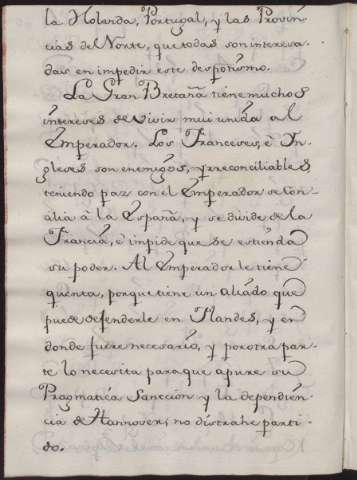 la Holanda, Portugal, y las Provin-
cias de Norte, que todas son interesa-
das en impedir este despotismo.
La Gran Bretaña tiene muchos
intereses de vivir mui unida al
Emperador. Los Franceses, è In-
gleses son enemigos, yrreconciliables
teniendo paz con el Emperador se con-
alia à la España, y se divide de la
Francia, è impide que se estienda
su poder. Al Emperador le tiene
quenta, porque tiene un aliado que
puede defenderle en Flandes, y en
donde fuere necesario, y por otra par-
te lo necesita para que apure su
Pragmatica Sanccion y la dependien-
cia de Hannover, no distrahe parti-
do.